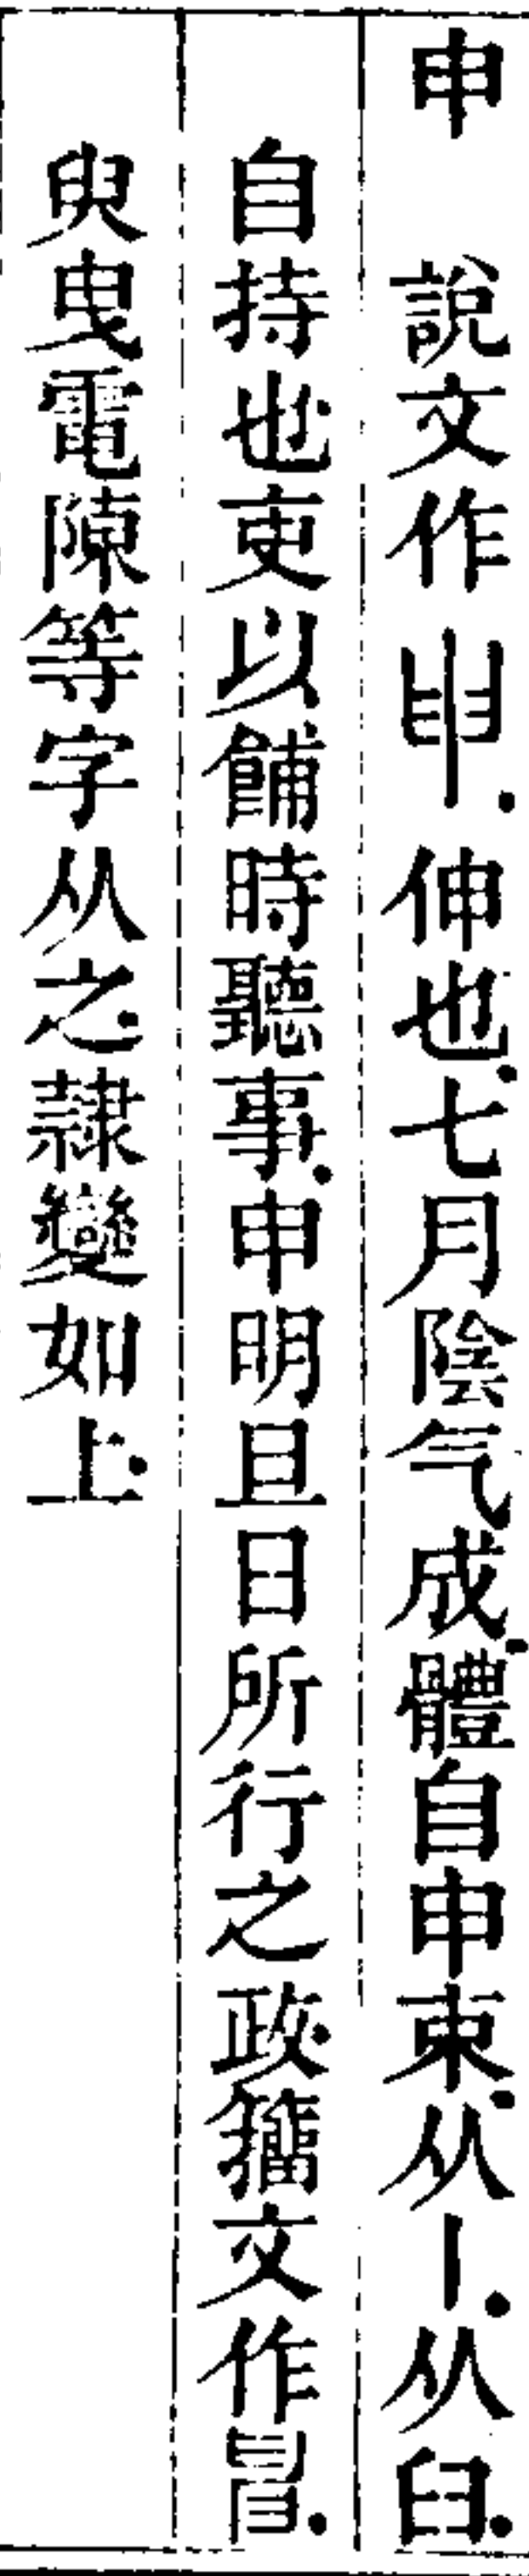 申　說文作𦥔.伸也.七月陰气成.體自申束.从丨.从𦥑.
自持也.吏以餔時聽事.申明旦日所行之政.籒文作𢑚.
臾曳電陳等字从之.隷變如上.